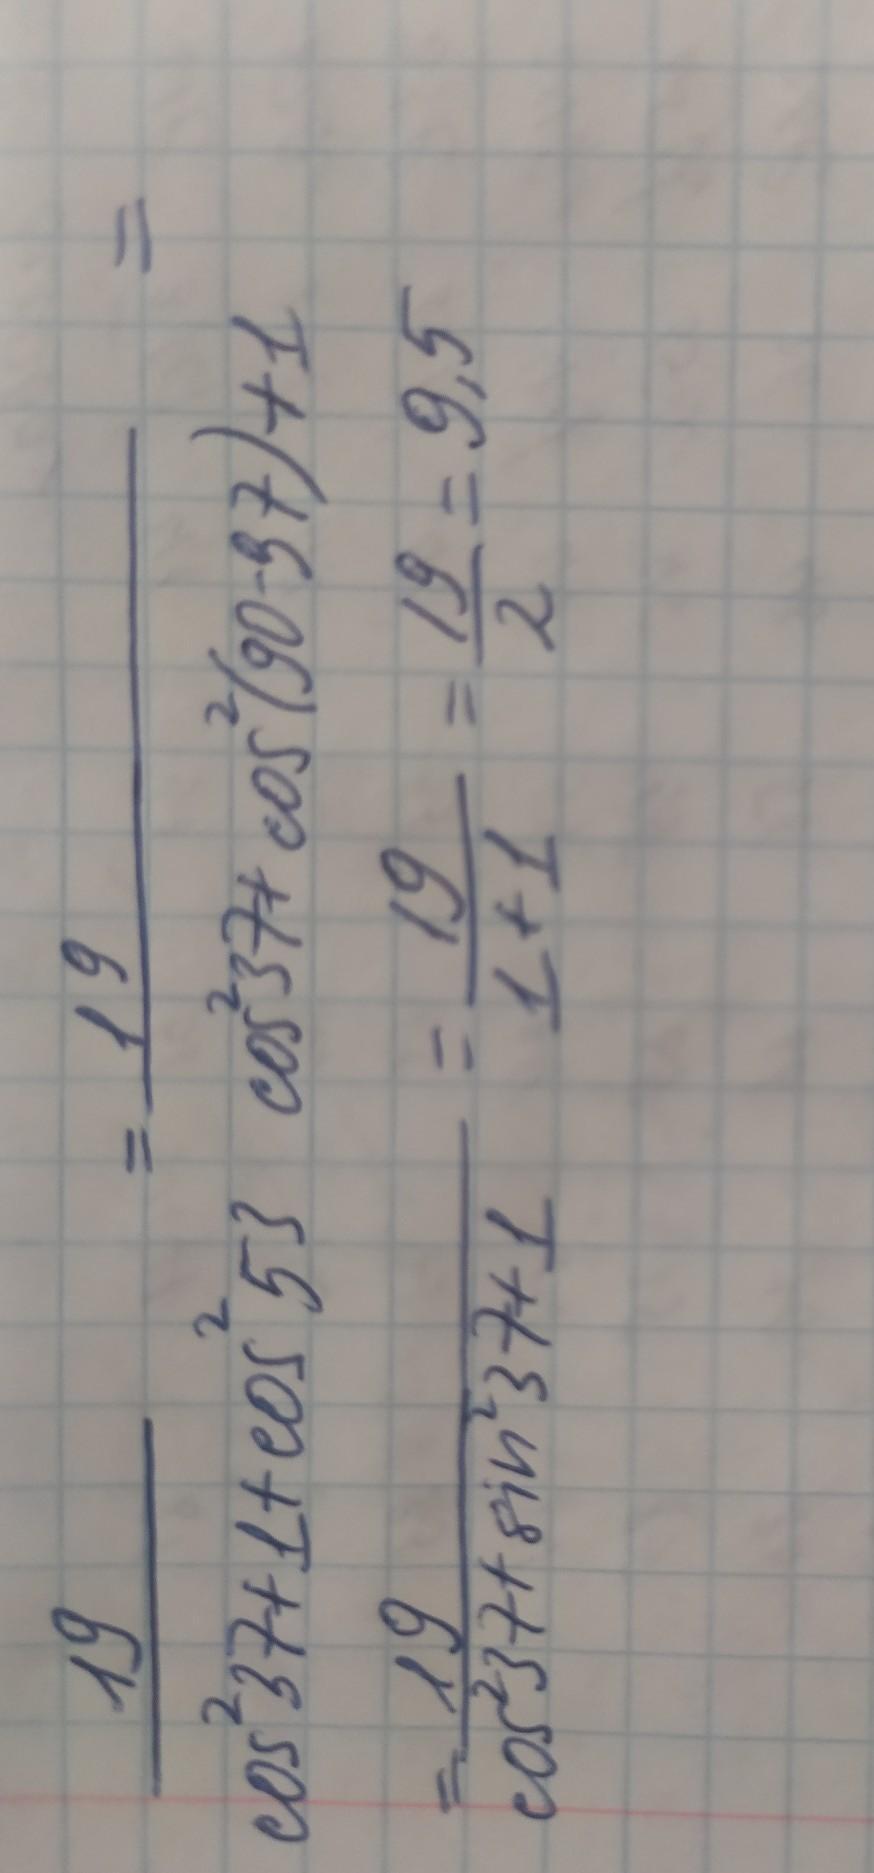 19 / cos²37+1+cos²53 = 19 / cos²37+cos²(90-37)+1 =
= 19 / cos²37+sin²37+1 = 19 / 1+1 = 19 / 2 = 9,5